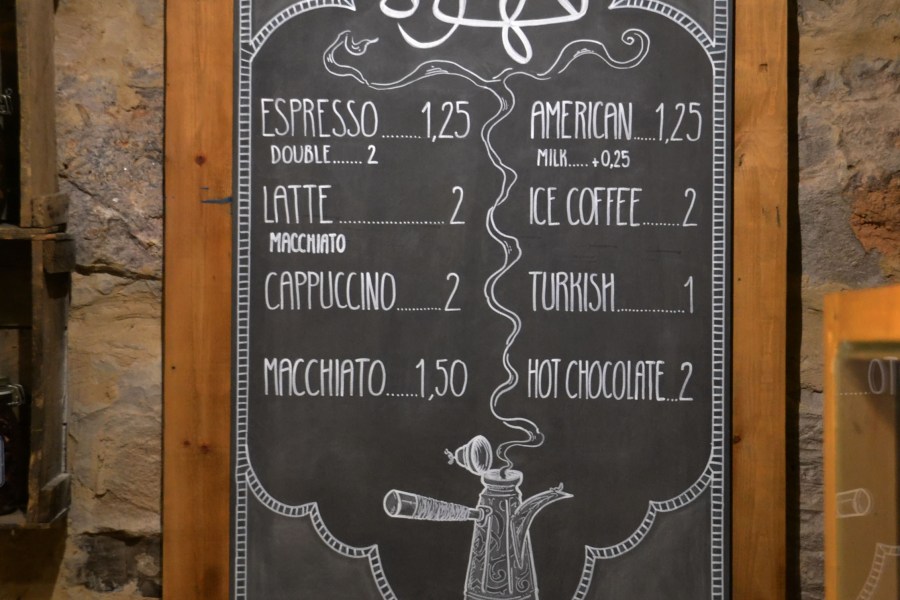 ESPRESSO........1,25
DOUBLE....... 2
LATTE ....................... 2
MACCHIATO
CAPPUCCINO......... 2
MACCHIATO.....1,50
AMERICAN.....1,25
MILK..... +0,25
ICE COFFEE........ 2
TURKISH............... 1
HOT CHOCOLATE...2